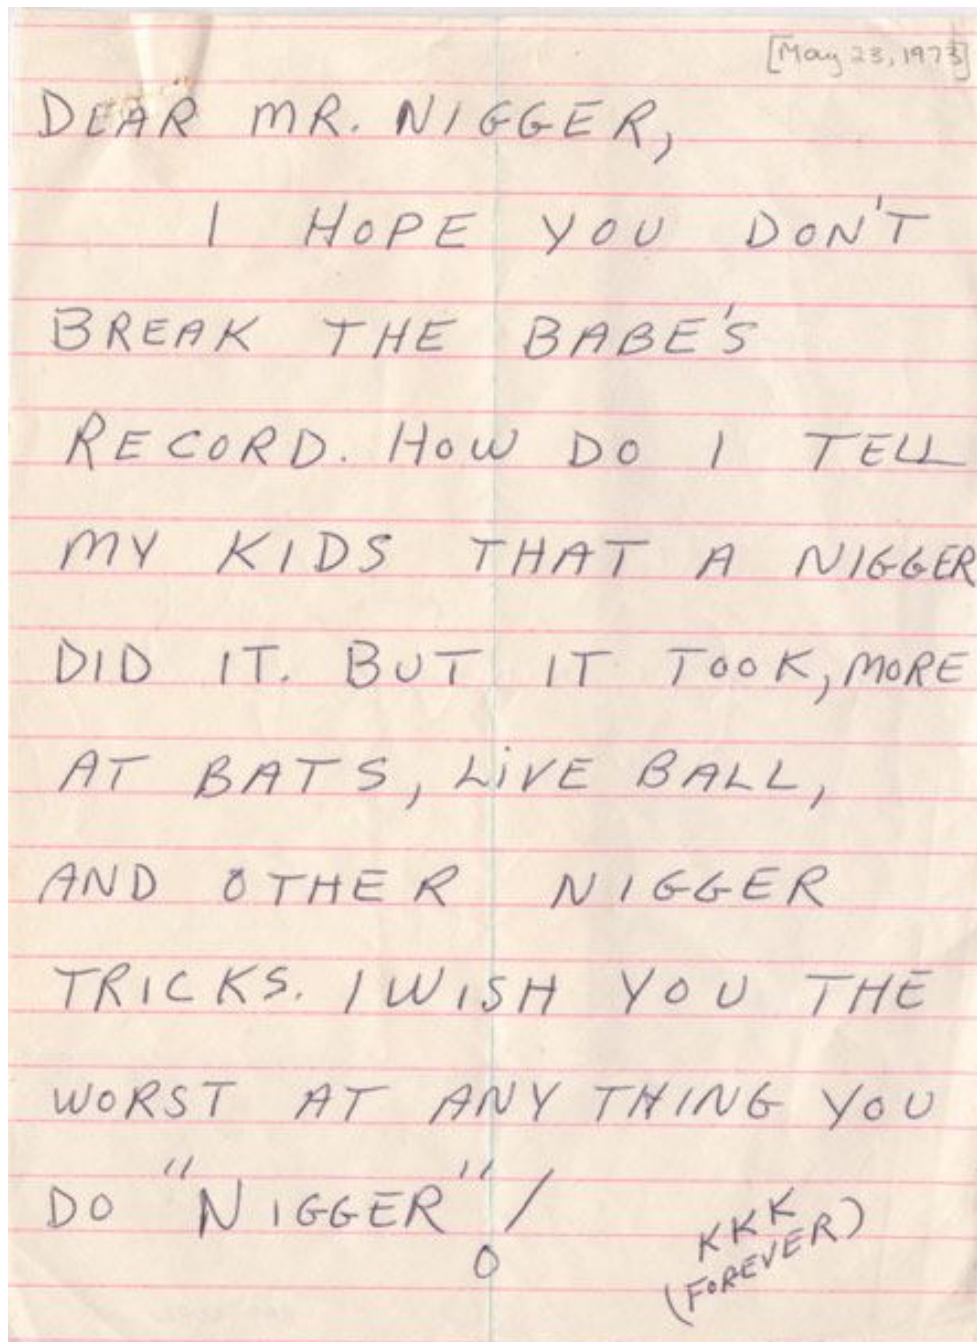 [May 23, 1973]
DEAR MR. NIGGER,
I HOPE YOU DON'T
BREAK THE BABE'S
RECORD. HOW DO I TELL
MY KIDS THAT A NIGGER
DID IT. BUT IT TOOK, MORE
AT BATS, LIVE BALL,
AND OTHER NIGGER
TRICKS. I WISH YOU THE
WORST AT ANY THING YOU
DO "NIGGER"!
KKK
(FOREVER)